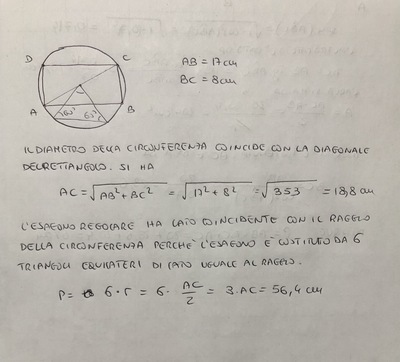 D
C
AB = 17 cm
BC = 8 cm
A
B
60°
IL DIAMETRO DELLA CIRCONFERENZA COINCIDE CON LA DIAGONALE
DEL RETTANGOLO. SI HA
AC = √AB² + BC² = √17² + 8² = √353 = 18,8 cm
L'ESAGONO REGOLARE HA LATO COINCIDENTE CON IL RAGGIO
DELLA CIRCONFERENZA PERCHÉ L'ESAGONO È COSTITUITO DA 6
TRIANGOLI EQUILATERI DI LATO UGUALE AL RAGGIO.
P = 6 · r = 6 · AC/2 = 3 · AC = 56,4 cm